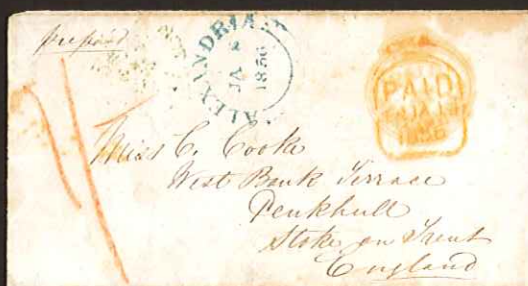 prepaid
ALEXANDRIA
JA 2
1856
PAID
JA 19
1856
Miss C. Cooke
West Bank Terrace
Penkhull
Stoke on Trent
England